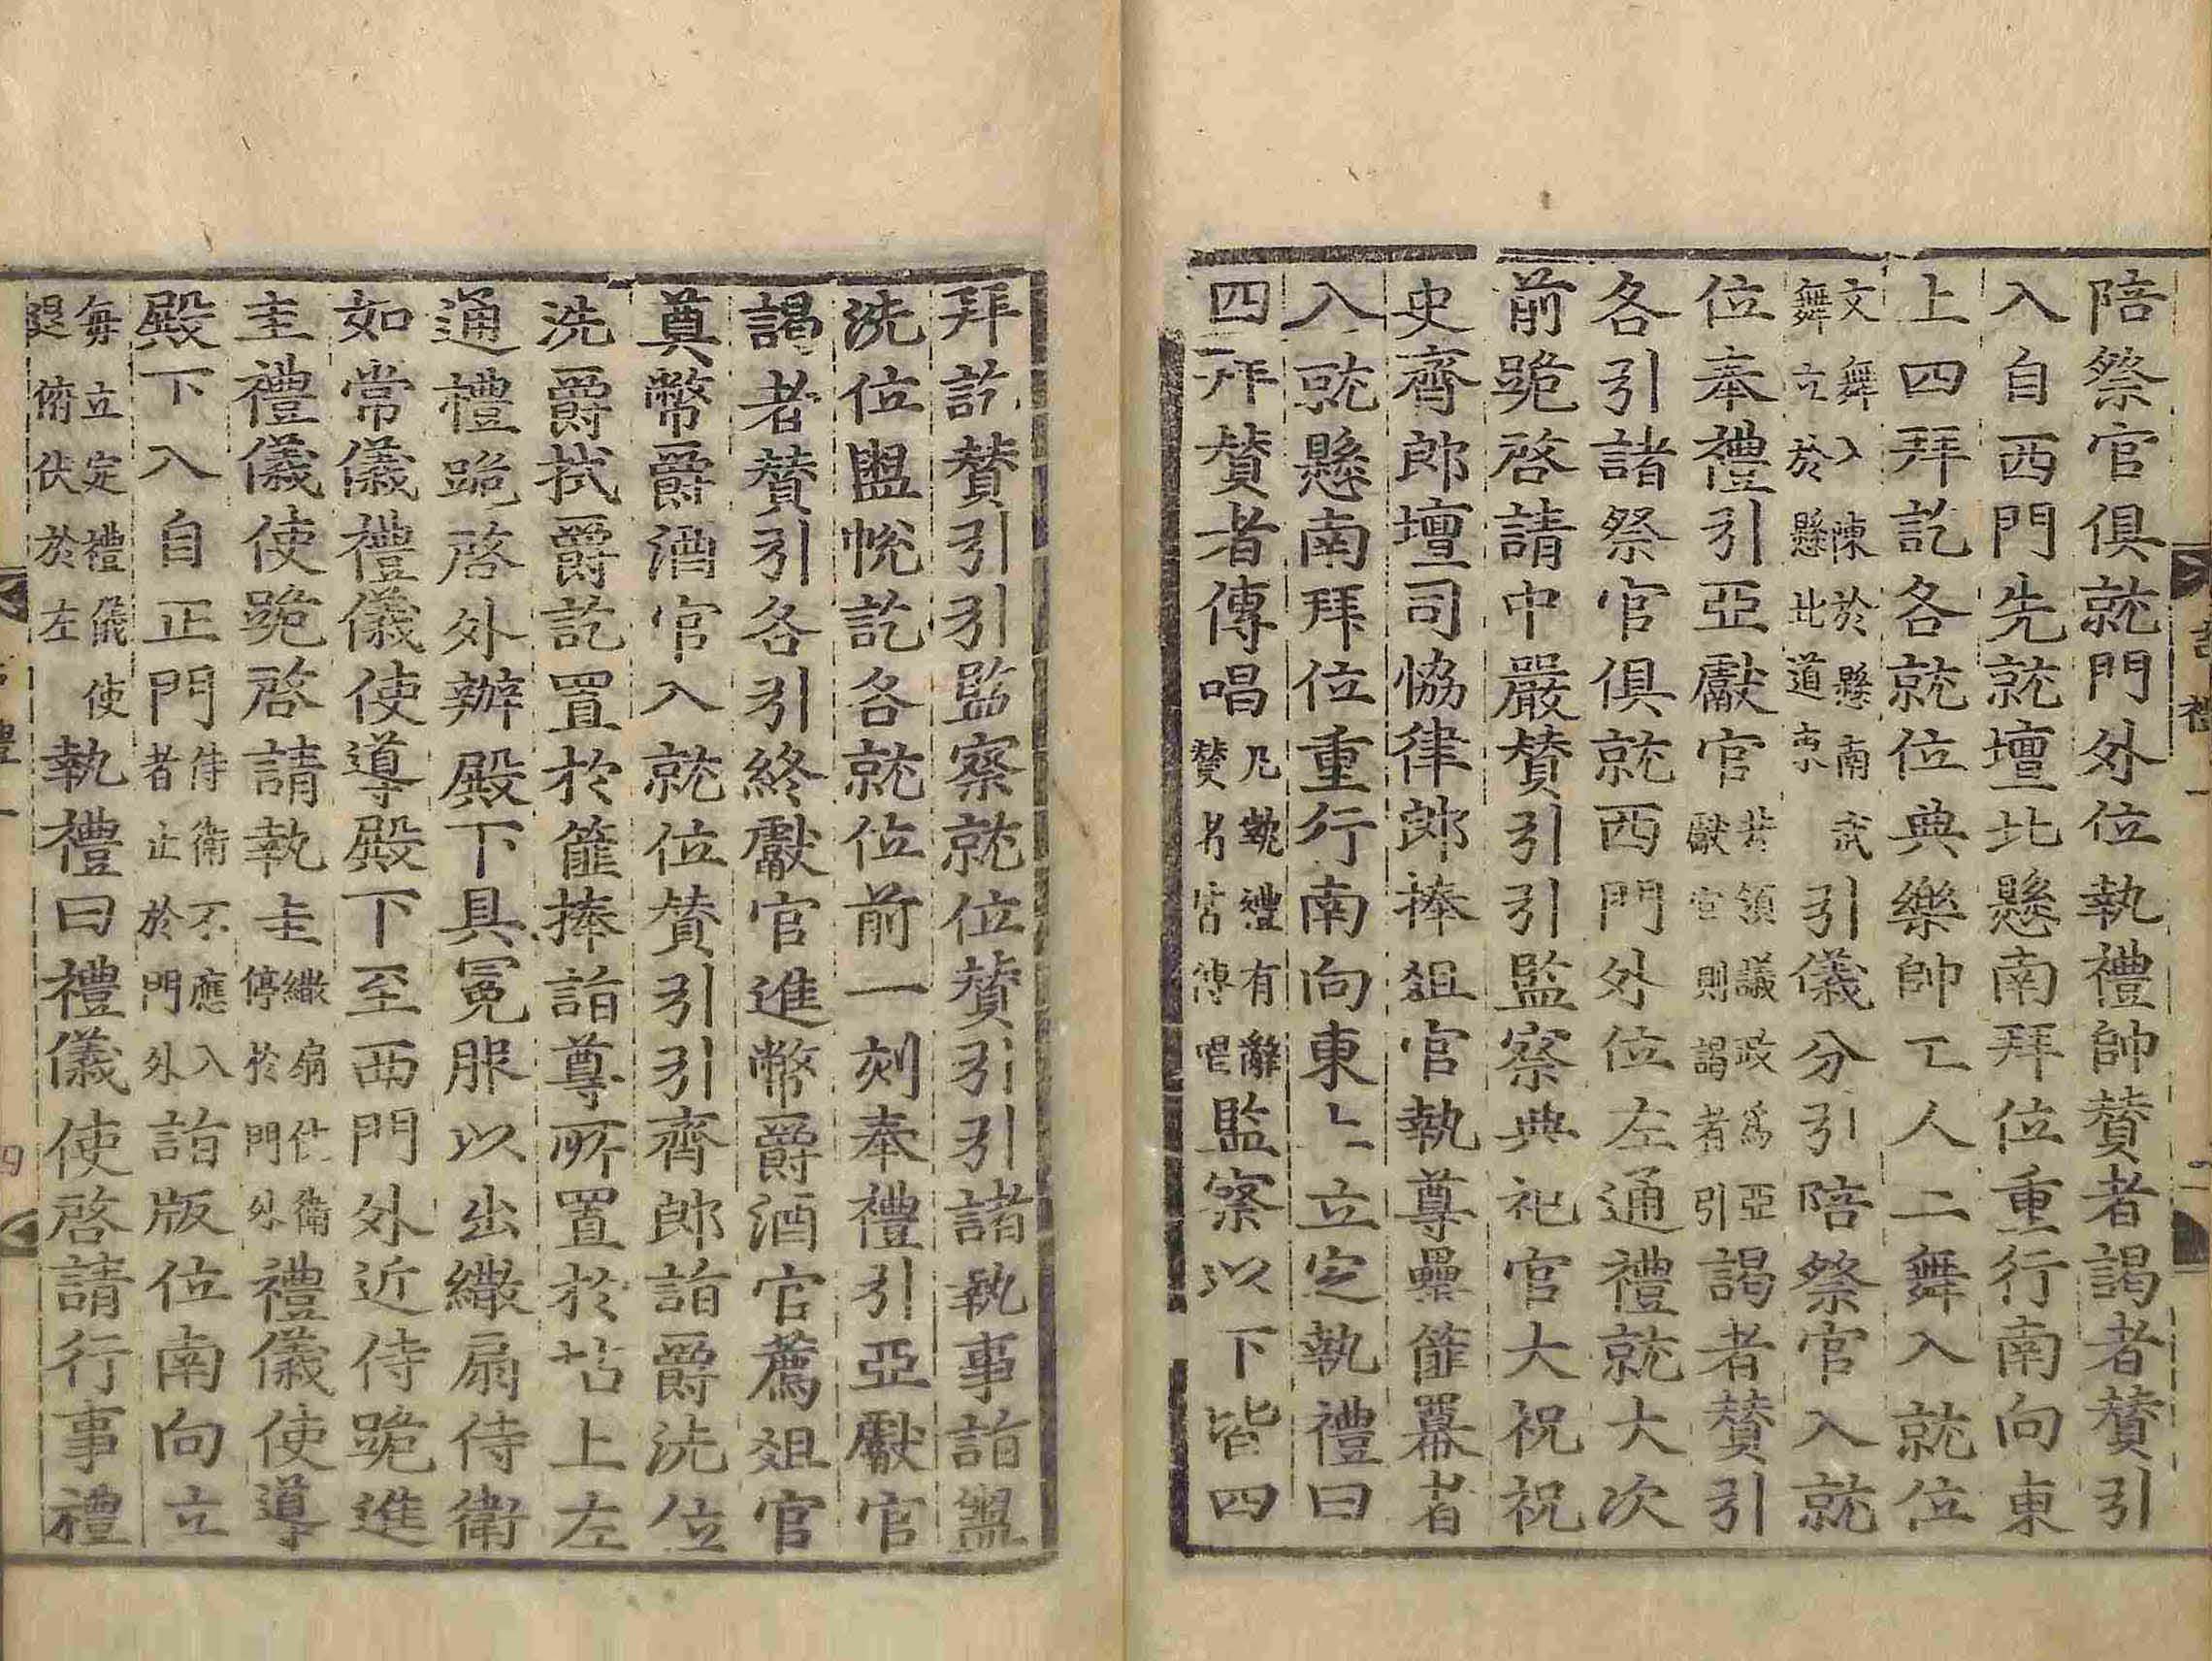 陪祭官俱就門外位執禮帥贊者謁者贊引
入自西門先就壇北懸南拜位重行南向東
上四拜訖各就位典樂帥工人二舞入就位
文舞入陳於懸南武舞立於懸北道東引儀分引陪祭官入就
位奉禮引亞獻官若領議政爲亞獻官則謁者引謁者贊引
各引諸祭官俱就西門外位左通禮就大次
前跪啓請中嚴贊引引監察典祀官大祝祝
史齊郎壇司協律郎捧俎官執尊罍篚冪者
入就懸南拜位重行南向東上立定執禮曰
四拜贊者傳唱凡執禮有辭贊者皆傳唱監察以下皆四
拜訖贊引引監察就位贊引引諸執事詣盥
洗位盥帨訖各就位前一刻奉禮引亞獻官
謁者贊引各引終獻官進幣爵酒官薦俎官
奠幣爵酒官入就位贊引引齊郎詣爵洗位
洗爵拭爵訖置於篚捧詣尊所置於坫上左
通禮跪啓外辦殿下具冕服以出繖扇侍衛
如常儀禮儀使導殿下至西門外近侍跪進
圭禮儀使跪啓請執圭繖扇仗衛停於門外禮儀使導
殿下入自正門侍衛不應入者止於門外詣版位南向立
每立定禮儀使退俯伏於左執禮曰禮儀使啓請行事禮